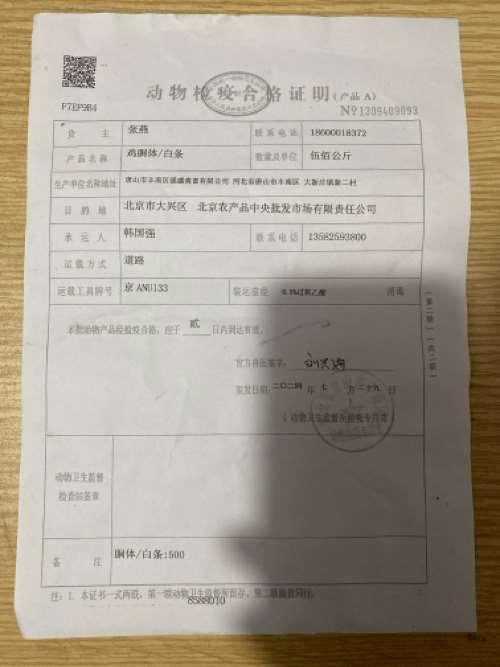 动物检疫合格证明(产品 A)
F7EF9B4
№1309409093
货 主 张燕 联系电话 18600018372
产品名称 鸡胴体/白条 数量及单位 伍佰公斤
生产单位名称地址 唐山市丰南区 有限公司 河北省唐山市丰南区 大新庄镇 二村
目的地 北京市大兴区 北京农产品中央批发市场有限责任公司
承运人 韩国强 联系电话 13582593800
运载方式 道路
运载工具牌号 京 ANU133 装运前经 0.3%过氧乙酸 消毒
本批动物产品经检疫合格,应于 贰 日内到达有效。
官方兽医签字:
签发日期:二〇二四 年 七 月 二十九 日
(动物卫生监督所检疫专用章
(第二联)(共二联)
动物卫生监督
检查站签章
备 注 胴体/白条:500
注:1. 本证书一式两联,第一联动物卫生监督所留存,第二联随货同行。
8588010